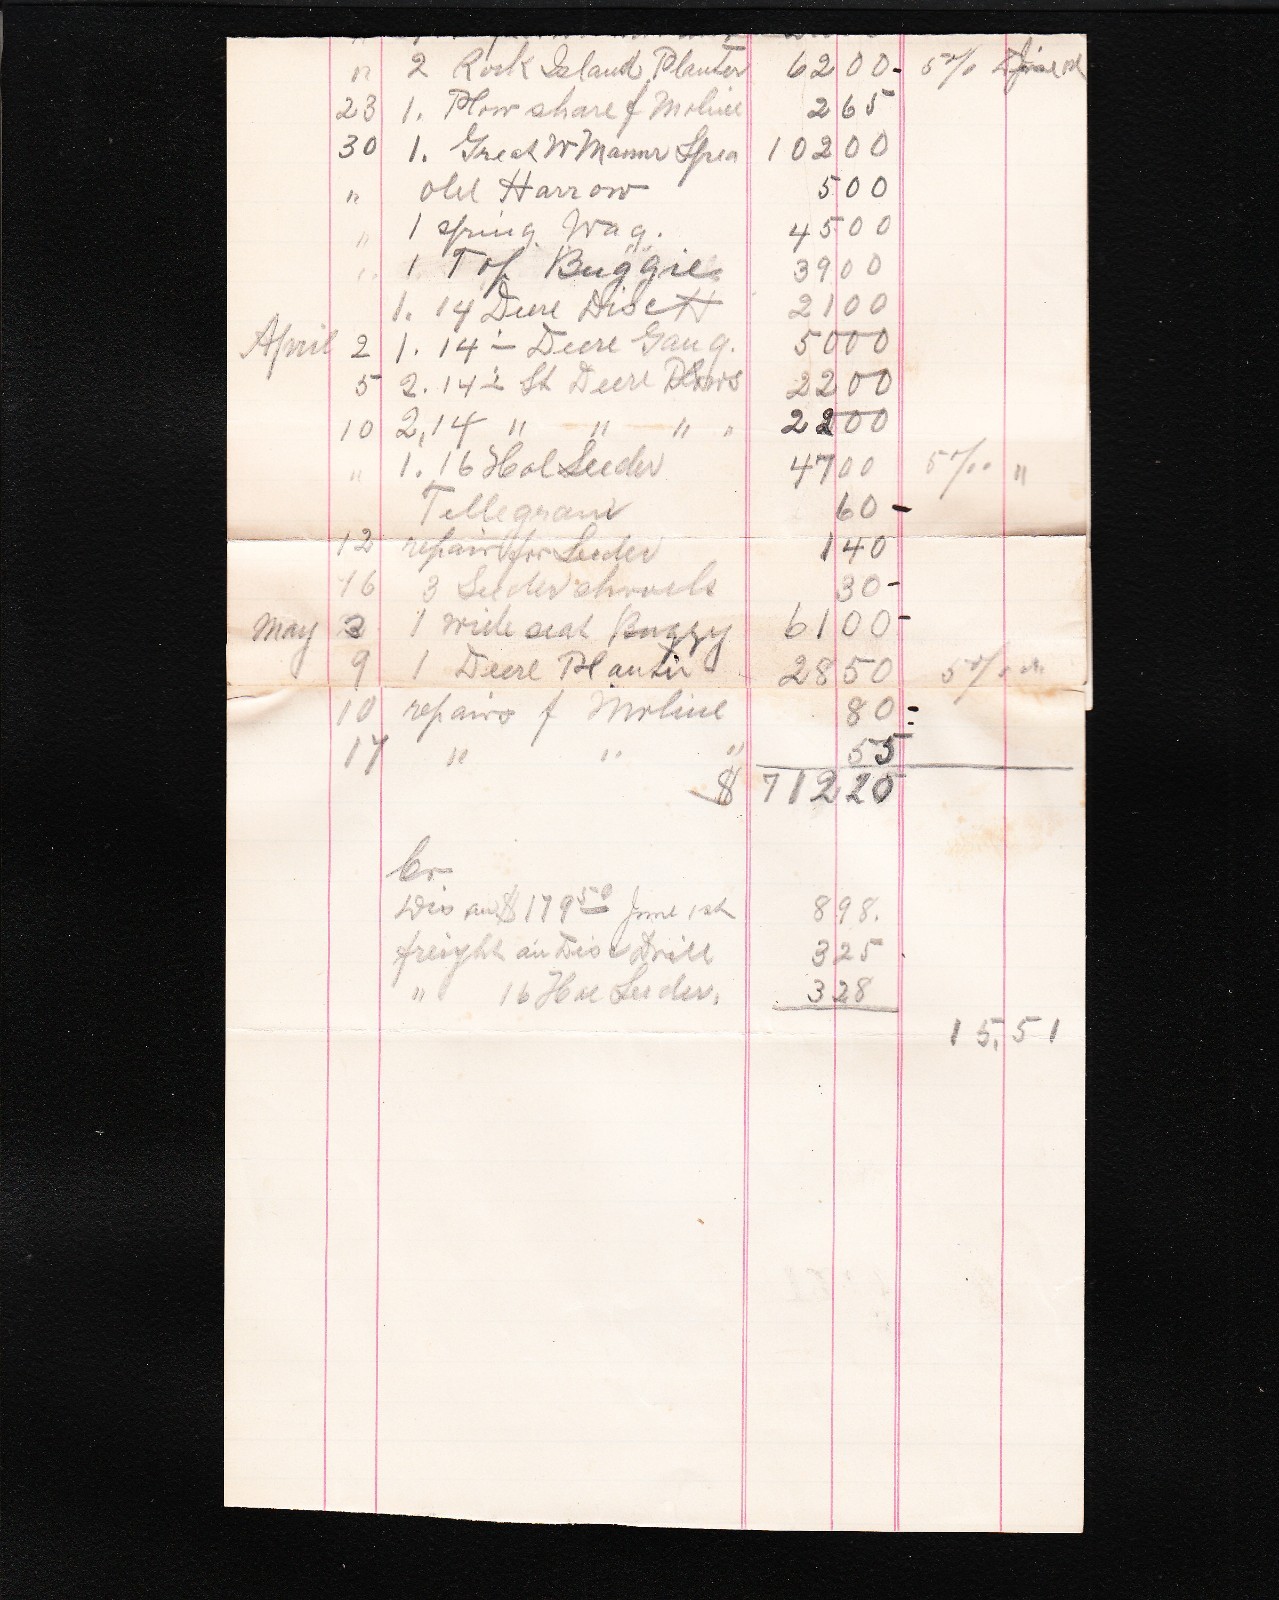 " 2 Rock Island Planter 62 00 - 5 % Disc
23 1. Plow share f Moline 2 65
30 1. Great W Manur Sprea 102 00
" old Harrow 5 00
" 1 spring Wag. 45 00
" 1 Top Buggie 39 00
1. 14 Deere Disc H 21 00
April 2 1. 14 in Deere Gang. 50 00
5 2. 14 in St Deere Plows 22 00
10 2, 14 " " " " 22 00
" 1. 16 Hol Seeder 47 00 5 % "
Tellegram 60 -
12 repair for Seeder 1 40
16 3 Seeder shovels 30 -
May 2 1 wide seat Buggy 61 00 -
9 1 Deere Planter 28 50 5 %
10 repairs f Moline 80 -
17 " " " 55
$ 712 20
Cr
Dis on $ 179 50 June 1st 8 98.
freight on Disc Drill 3 25
" 16 Hoe Seeder. 3 28
15.51